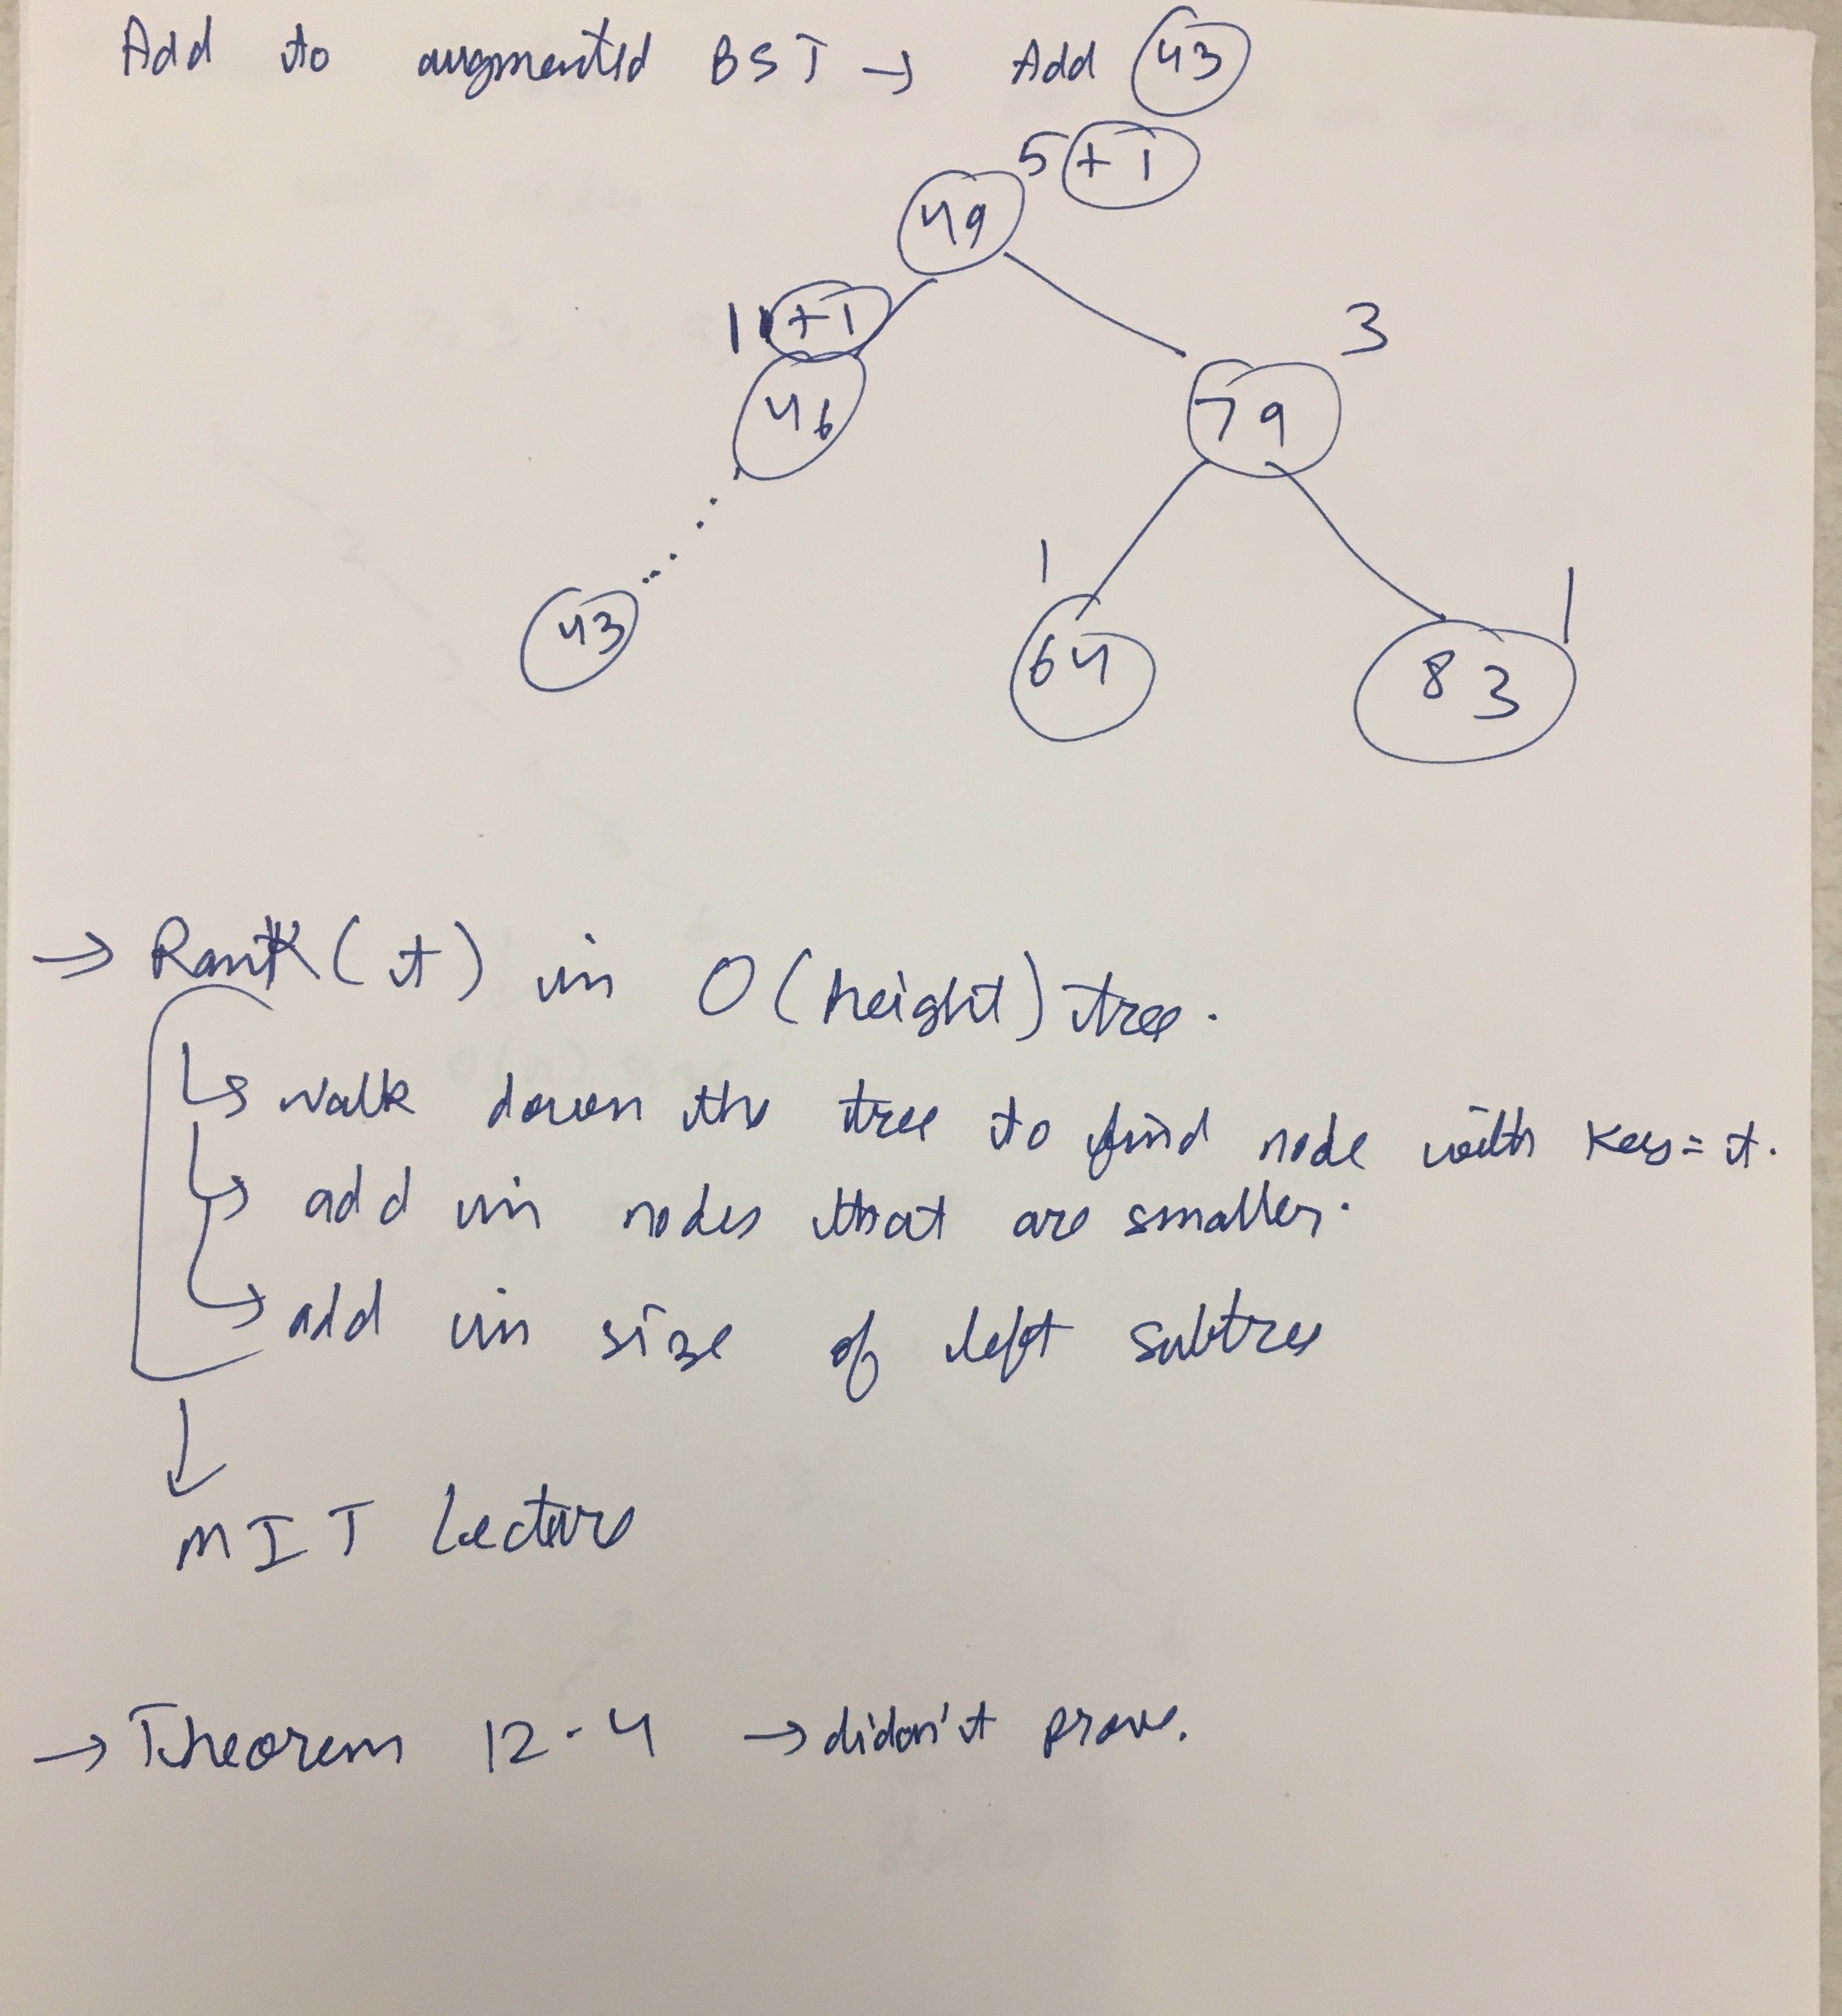 Add to augmented BST → Add 43
5 +1
49
1 +1
3
46
79
1
1
43
64
83
→ Rank(t) in O(height) tree.
↳ walk down the tree to find node with key = t.
↳ add in nodes that are smaller.
↳ add in size of left subtree
↓
MIT Lecture
→ Theorem 12.4 → didn't prove.